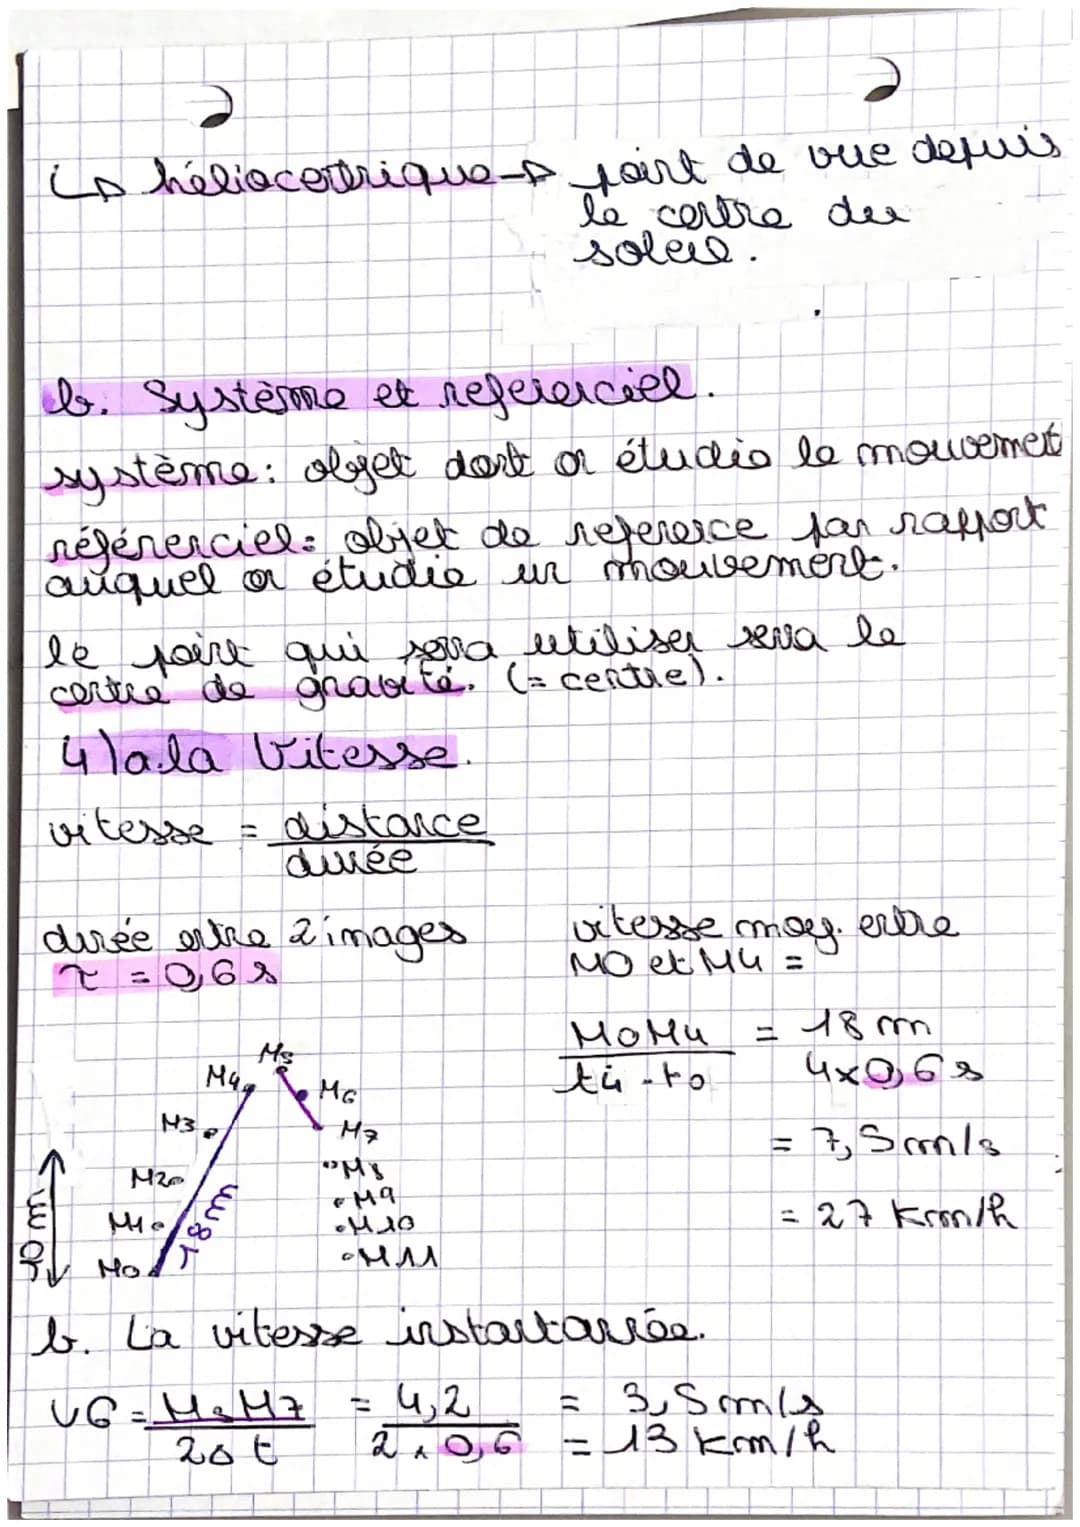 ↳ héliocentrique → point de vue depuis
le centre du
soleil.
b. Système et referenciel.
système: objet dont on étudie le mouvement
référenciel: objet de reference par rapport
auquel on étudie un mouvement.
le point qui sera utiliser sera le
centre de gravité. (= centre).
4) a. la Vitesse.
vitesse = distance
durée
durée entre 2 images
τ = 0,6 s
vitesse moy. entre
M0 et M4 =
M0M4 = 18 m
t4 - t0 4x0,6 s
= 7,5 m/s
= 27 Km/h
M5
M4
M6
M3
M7
M2
M8
M1
M9
M10
M0
M11
18m
b. La vitesse instantannée.
V6 = M5M7 = 4,2 = 3,5 m/s
2Δt 2 x 0,6 = 13 Km/h